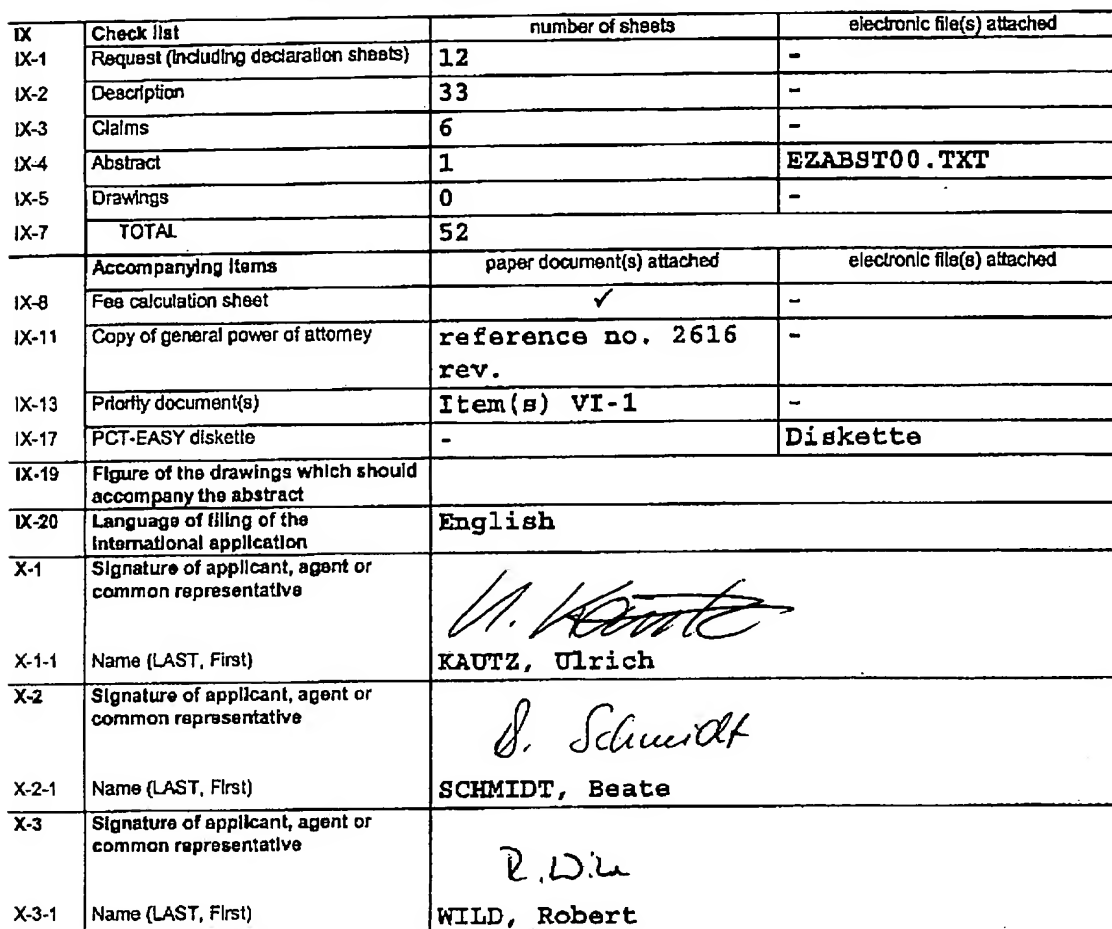 IX Check list number of sheets electronic file(s) attached
IX-1 Request (including declaration sheets) 12 -
IX-2 Description 33 -
IX-3 Claims 6 -
IX-4 Abstract 1 EZABST00.TXT
IX-5 Drawings 0 -
IX-7 TOTAL 52
Accompanying Items paper document(s) attached electronic file(s) attached
IX-8 Fee calculation sheet ✓ -
IX-11 Copy of general power of attorney reference no. 2616 -
rev.
IX-13 Priority document(s) Item(s) VI-1 -
IX-17 PCT-EASY diskette - Diskette
IX-19 Figure of the drawings which should
accompany the abstract
IX-20 Language of filing of the English
international application
X-1 Signature of applicant, agent or
common representative
U. Kautz
X-1-1 Name (LAST, First) KAUTZ, Ulrich
X-2 Signature of applicant, agent or
common representative
B. Schmidt
X-2-1 Name (LAST, First) SCHMIDT, Beate
X-3 Signature of applicant, agent or
common representative
R. Wild
X-3-1 Name (LAST, First) WILD, Robert